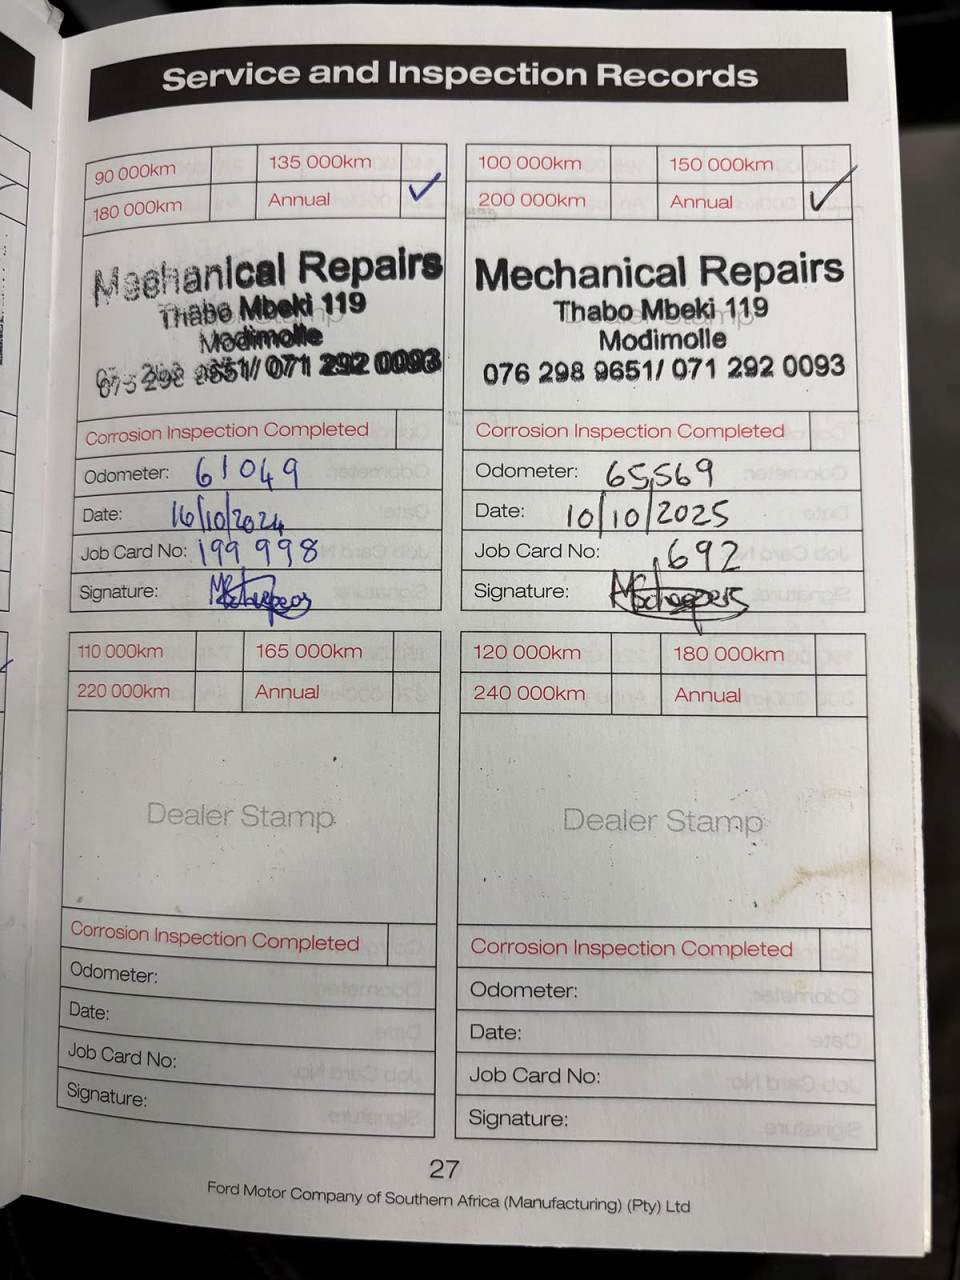 Service and Inspection Records
90 000km 135 000km
180 000km Annual ✓
Mechanical Repairs
Thabo Mbeki 119
Modimolle
076 298 9651/ 071 292 0093
Corrosion Inspection Completed
Odometer: 61049
Date: 16/10/2024
Job Card No: 199 998
Signature:
100 000km 150 000km
200 000km Annual ✓
Dealer Stamp
Mechanical Repairs
Thabo Mbeki 119
Modimolle
076 298 9651/ 071 292 0093
Corrosion Inspection Completed
Odometer: 65,569
Date: 10/10/2025
Job Card No: 1692
Signature:
110 000km 165 000km
220 000km Annual
Dealer Stamp
Corrosion Inspection Completed
Odometer:
Date:
Job Card No:
Signature:
120 000km 180 000km
240 000km Annual
Dealer Stamp
Corrosion Inspection Completed
Odometer:
Date:
Job Card No:
Signature:
27
Ford Motor Company of Southern Africa (Manufacturing) (Pty) Ltd